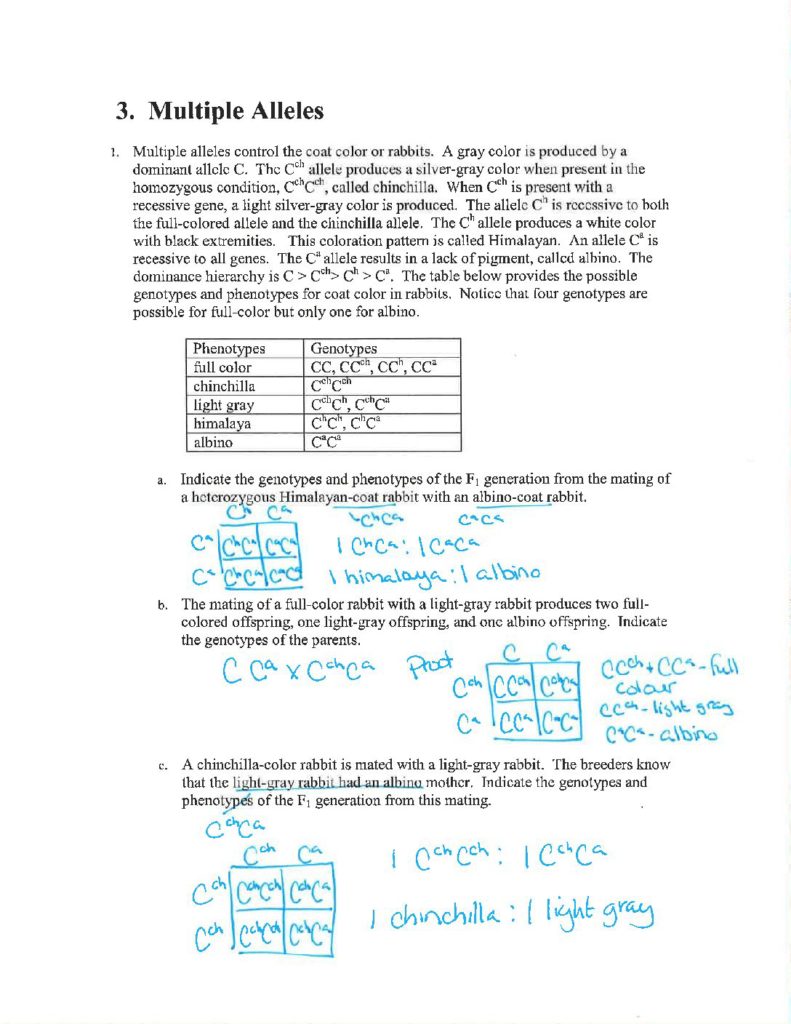 3. Multiple Alleles
1. Multiple alleles control the coat color or rabbits. A gray color is produced by a
dominant allele C. The Cᶜʰ allele produces a silver-gray color when present in the
homozygous condition, CᶜʰCᶜʰ, called chinchilla. When Cᶜʰ is present with a
recessive gene, a light silver-gray color is produced. The allele Cʰ is recessive to both
the full-colored allele and the chinchilla allele. The Cʰ allele produces a white color
with black extremities. This coloration pattern is called Himalayan. An allele Cᵃ is
recessive to all genes. The Cᵃ allele results in a lack of pigment, called albino. The
dominance hierarchy is C > Cᶜʰ> Cʰ > Cᵃ. The table below provides the possible
genotypes and phenotypes for coat color in rabbits. Notice that four genotypes are
possible for full-color but only one for albino.
Phenotypes Genotypes
full color CC, CCᶜʰ, CCʰ, CCᵃ
chinchilla CᶜʰCᶜʰ
light gray CᶜʰCʰ, CᶜʰCᵃ
himalaya CʰCʰ, CʰCᵃ
albino CᵃCᵃ
a. Indicate the genotypes and phenotypes of the F₁ generation from the mating of
a heterozygous Himalayan-coat rabbit with an albino-coat rabbit.
Cʰ Cᵃ CʰCᵃ CᵃCᵃ
Cᵃ CʰCᵃ CᵃCᵃ 1 CʰCᵃ : 1 CᵃCᵃ
Cᵃ CʰCᵃ CᵃCᵃ 1 himalaya : 1 albino
b. The mating of a full-color rabbit with a light-gray rabbit produces two full-
colored offspring, one light-gray offspring, and one albino offspring. Indicate
the genotypes of the parents.
C Cᵃ x CᶜʰCᵃ Proof C Cᵃ
Cᶜʰ CCᶜʰ CᶜʰCᵃ CCᶜʰ + CCᵃ - full
colour
CCᶜʰ - light gray
Cᵃ CCᵃ CᵃCᵃ CᵃCᵃ - albino
c. A chinchilla-color rabbit is mated with a light-gray rabbit. The breeders know
that the light-gray rabbit had an albino mother. Indicate the genotypes and
phenotypes of the F₁ generation from this mating.
CᶜʰCᵃ
Cᶜʰ Cᵃ 1 CᶜʰCᶜʰ : 1 CᶜʰCᵃ
Cᶜʰ CᶜʰCᶜʰ CᶜʰCᵃ
Cᶜʰ CᶜʰCᶜʰ CᶜʰCᵃ 1 chinchilla : 1 light gray